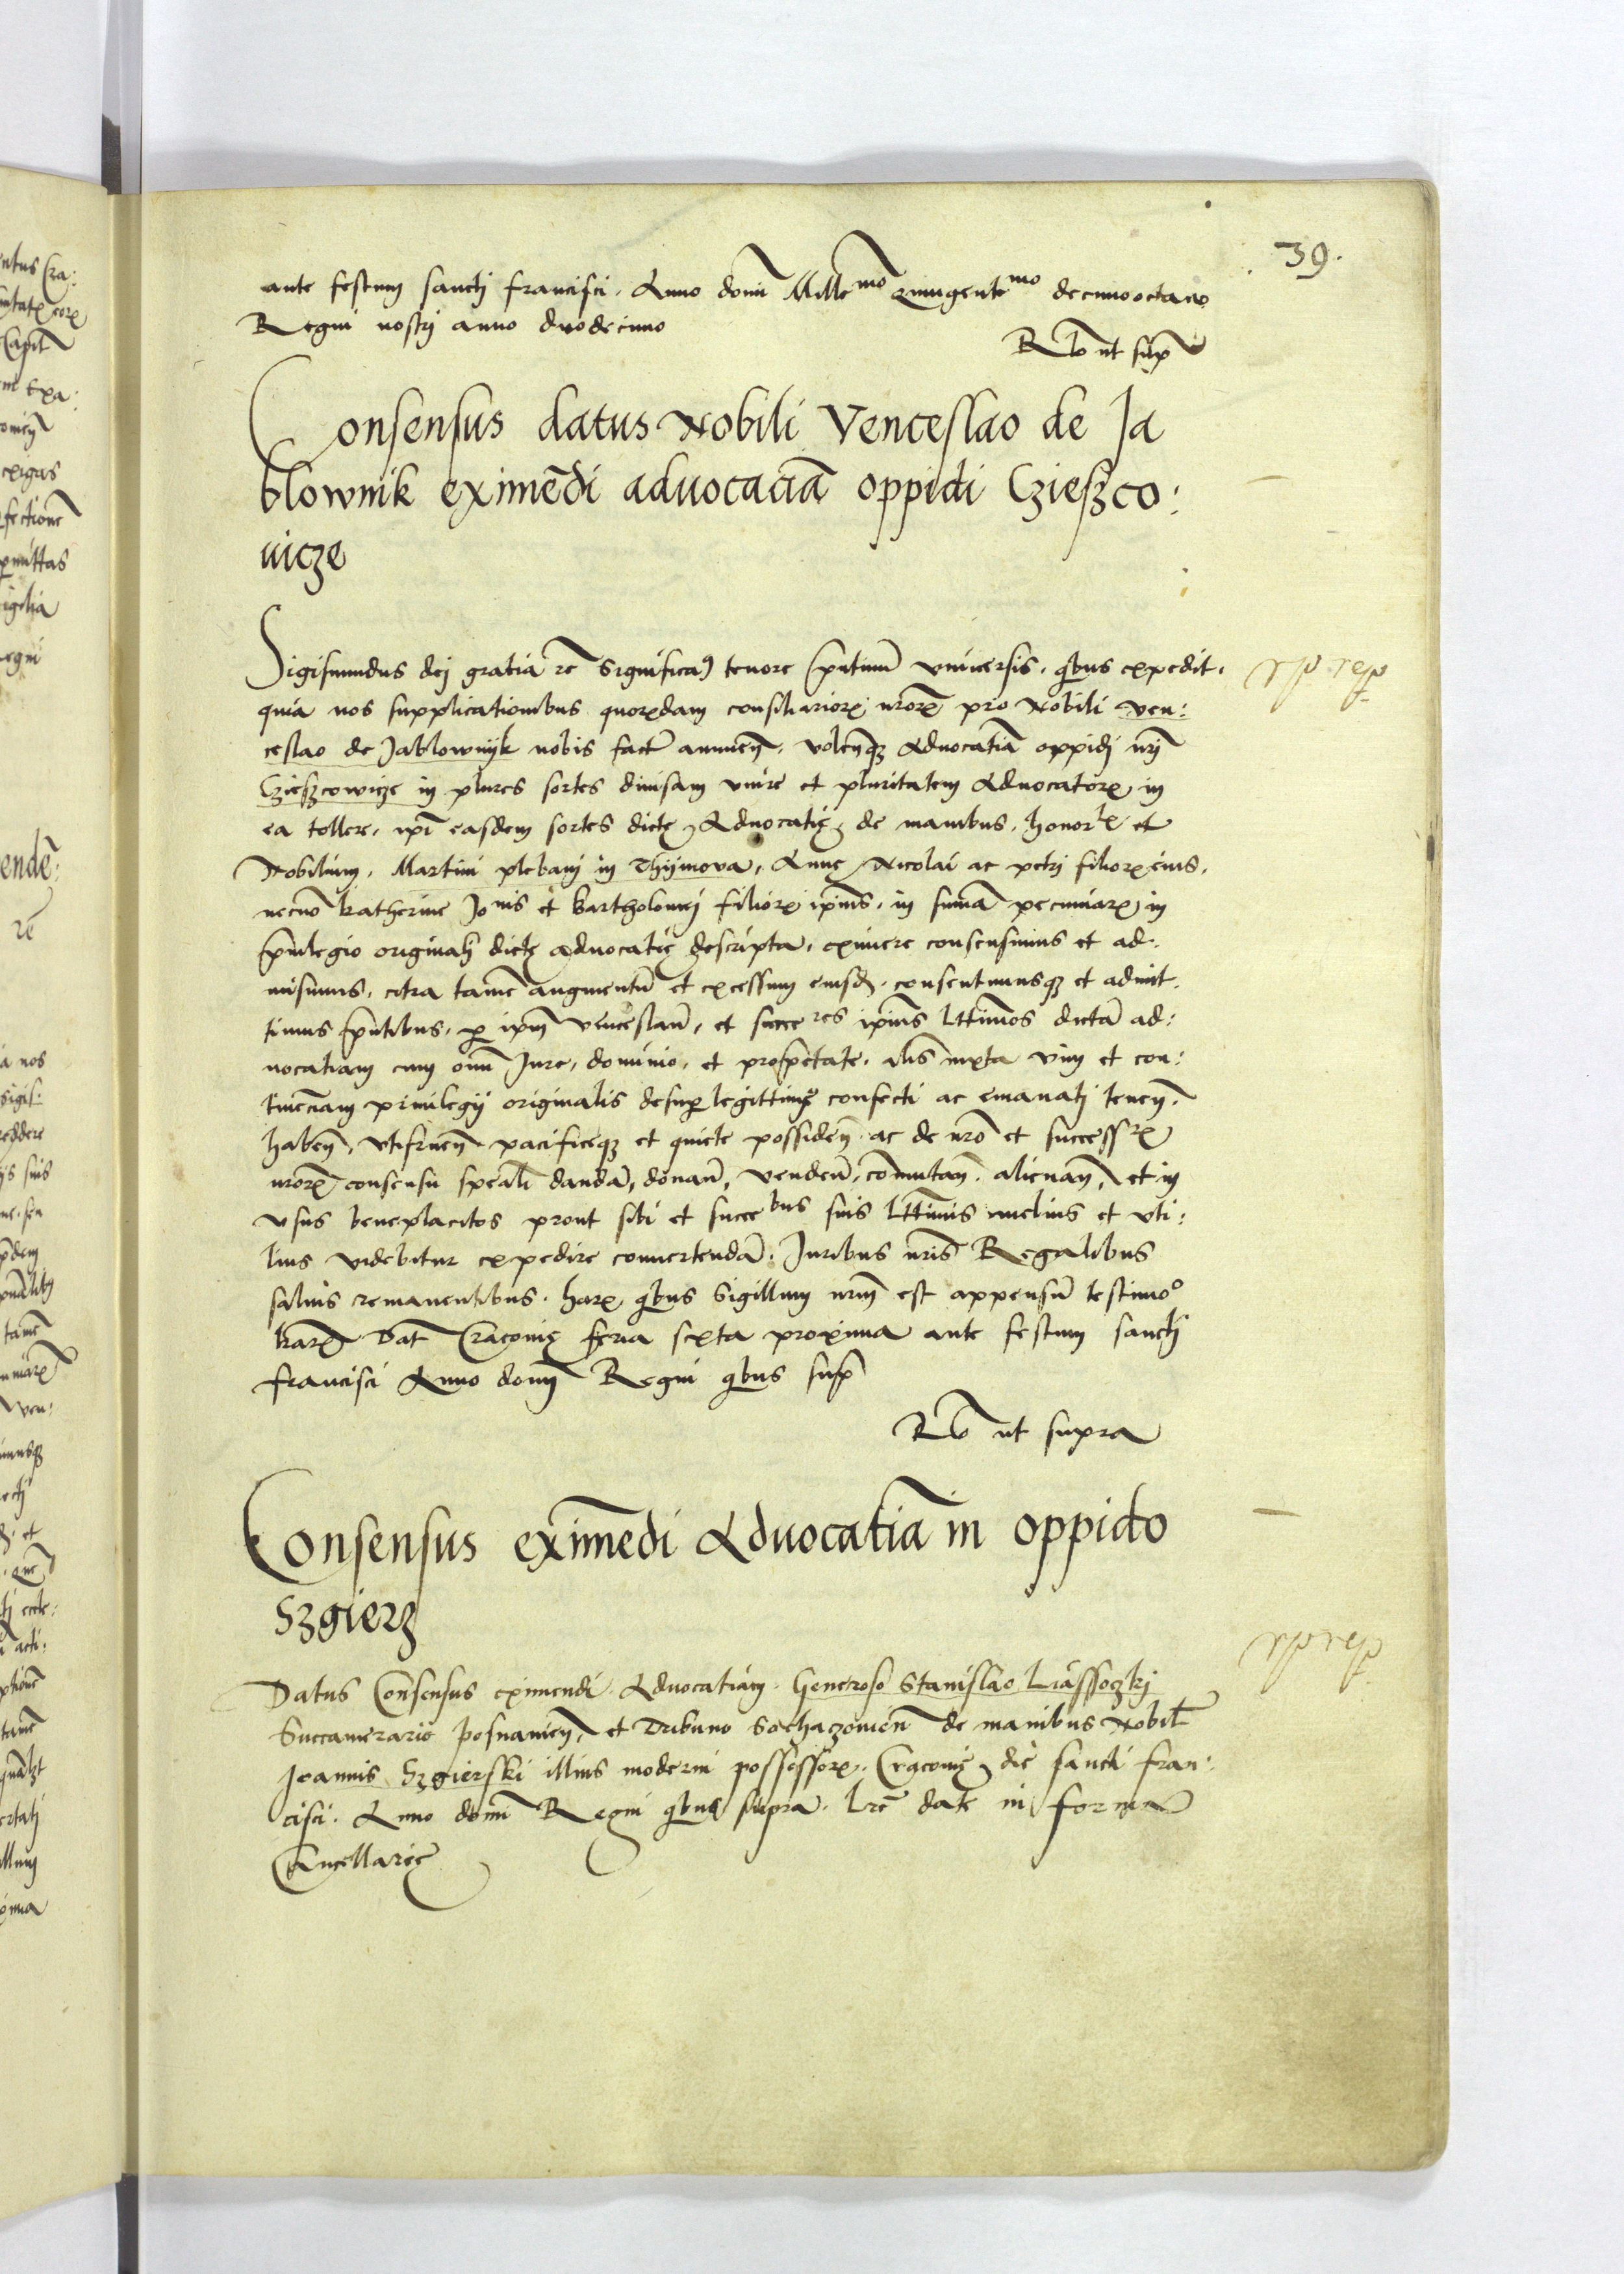 39.
ante festum sancti francisci. Anno domi Mille^mo quingente^mo decimooctavo
Regni nostri anno duodecimo
R̃o ut sup̃
Consensus datus Nobili Venceslao de Ja
blownik eximẽdi aduocaciã oppidi Czieszco:
uicze
Sigismundus dei gratia rẽ Significam9 tenore p̃ntium vniuersis. qbus expedit.
quia nos supplicationibus quorundam consiliarior̃ nror̃ pro Nobili ven:
ceslao de Jablownyk nobis fact̃ annueñ. volenq̃ Aduocatiã oppidi nrĩ
Czieszcowicze in plures sortes diuisam vnire et pluritatem Aduocator̃ in
ea tollere. ipĩ easdem sortes dictę Aduocatię de manibus. honor^lis et
Nobilium. Martini plebani in Thijmova, Annę Nicolai ac petri filior̃ eius.
necnõ katherine Jo^nis et Bartholomei filior̃ ipĩus. in sumã pecuniar̃ in
p̃uilegio originali dictę aduocatię descripta. eximere consensimus et ad:
misimus. citra tamẽ augmentũ et excessum eiusd̃. consentimusq̃ et admit:
timus p̃ntibus. p ip̃m venceslaũ, et succe^res ipĩus lttimos dictã ad:
uocatiam cum omĩ Jure. dominio. et prop̃etate. alĩs iuxta vim et con:
tinenciam priuilegij originalis desup legittime confecti ac emanati teneñ.
habeñ, vtifrueñ pacificeq̃ et quiete possideñ. ac de nrõ et success^r̃
nror̃ consensu speali dandã, donañ, vendeñ, comutañ. alienañ, et in
vsus beneplacitos prout sibi et succe^bus suis lttimis melius et vti:
lius videbitur expedire conuertendã. Juribus nrĩs Regalibus
saluis remanentibus. har̃ qbus Sigillum nrm̃ est appensũ testimo^o
liar̃. Dat̃ Cracouię feria sexta proxima ante festum sancti
francisci Anno domĩ Regni qbus sup̃
R̃o ut supra
Consensus eximẽdi Aduocatiã in oppido
Szgierz
Datus Consensus eximendi Aduocatiam. Generoso Stanislao Liassoczki
Succamerario posnanieñ, et Tribuno Sochazouieñ de manibus Nobil̃
Joannis Szgierski illius moderni possessor̃. Cracouię die sancti fran:
cisci. Anno domĩ Regni qbus supra. lrẽ date in forma
Cancellarię